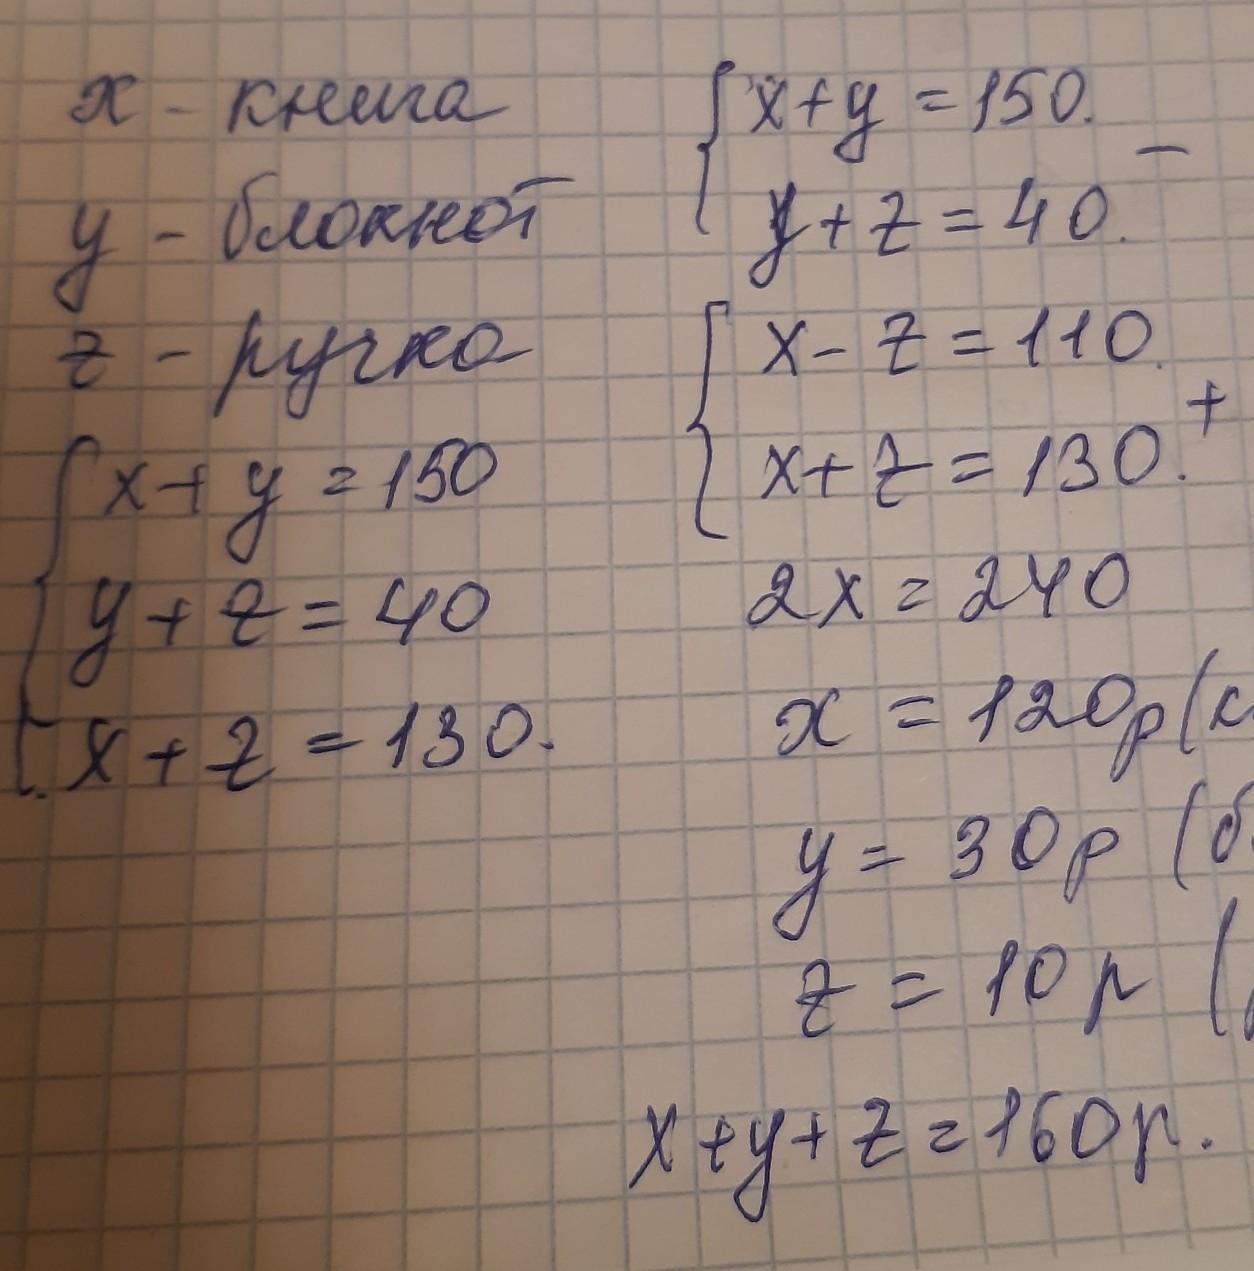 x - книга
y - блокнот
z - ручка
x + y = 150
y + z = 40
x + z = 130.
x + y = 150.
y + z = 40.
-
x - z = 110.
x + z = 130.
+
2x = 240
x = 120р (к
y = 30р (б
z = 10р (
x + y + z = 160р.